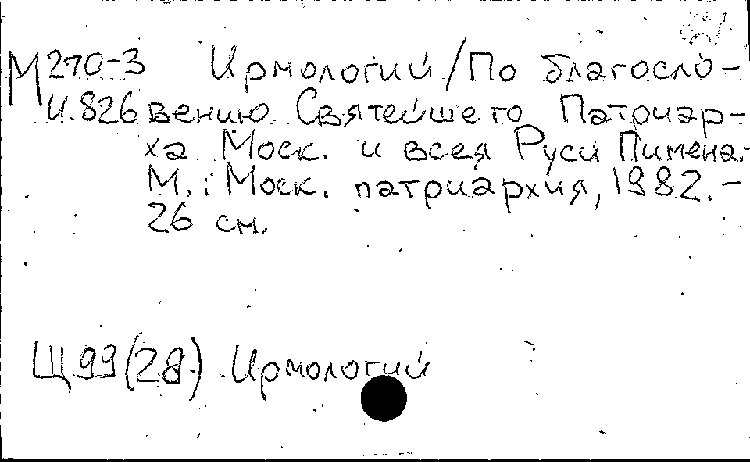 М270-3 Ирмологий/По благосло-
И.826 вению Святейшего Патриар-
ха Моск. и всея Руси Пимена.
М.: Моск. патриархия, 1982.-
26 см.
Щ99(28) Ирмологий